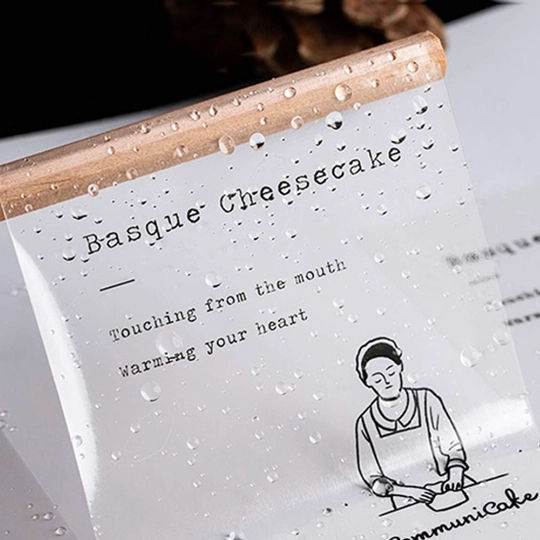 Basque Cheesecake
Touching from the mouth
Warming your heart
CommuniCake